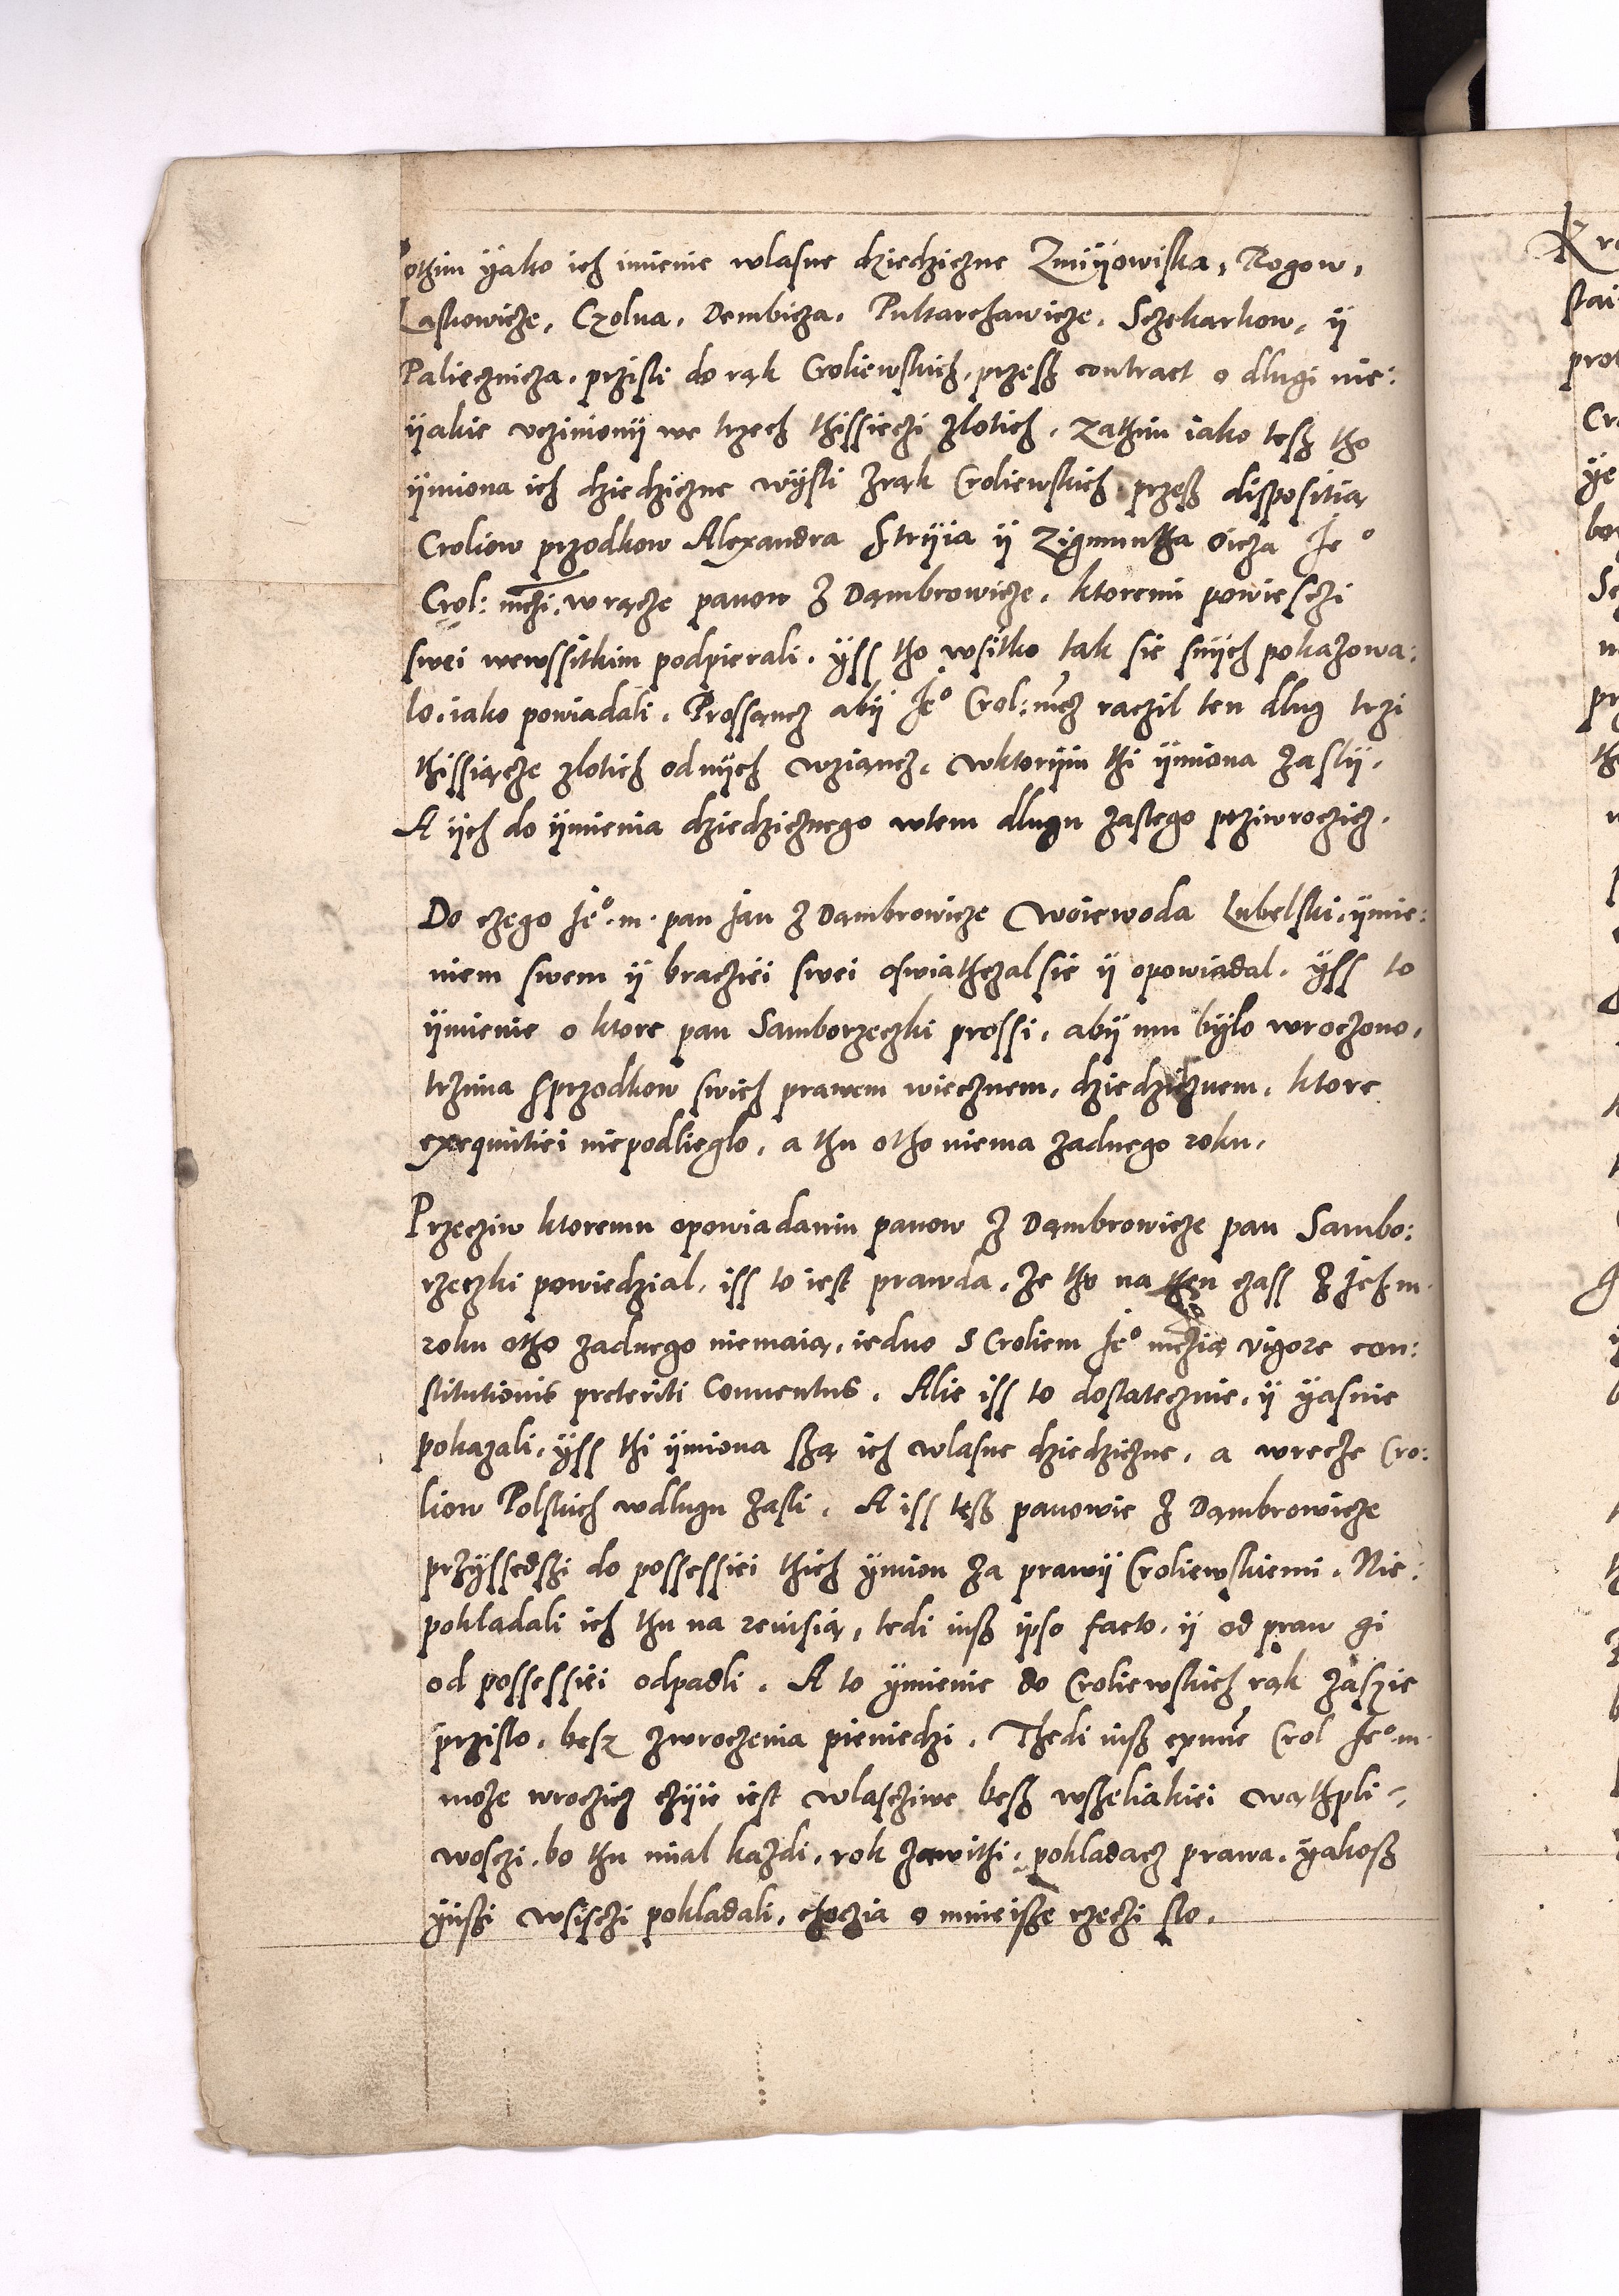 Pothim ÿako ich imienie wlasne dziedziczne Zmiÿowiska, Rogow,
Laskowicze, Czolna, Dembicza, Pultarchawicze, Sczekarkow, ÿ
Paliecznicza, prziszle do rąk Croliewskich, przesz contract o dlugi nie:
ÿakie vczinionÿ we trzech thissieczi zlotich. Zathim iako tesz tho
ÿmiona ich dziedziczne wÿsli zrąk Croliewskich przesz dispositią
Croliow przodkow Alexandra Strÿia ÿ Zigmuntha Oicza Je°
Crol: mczi, w rącze panow z Dąmbrowicze, ktoremi powiesczi
swei wewssitkim podpierali, ÿss tho wsitko tak sie snÿch pokazowa:
lo, iako powiadali. Prossącz abÿ Je° Crol: mcz raczil ten dlug trzi
thissiącze zlotich od nÿch wziącz, wktorÿm thi ÿmiona zaslÿ,
A ÿch do ÿmienia dziedzicznego wtem dlugu zaslego prziwroczicz.
Do czego Je°. m. pan Jan z Dambrowicze Woiewoda Lubelski, ÿmie:
niem swem ÿ braciei swei oswiathczal sie ÿ opowiadal, ÿss to
ÿmienie o ktore pan Samborzeczki prossi, abÿ mu bÿlo wroczono,
trzima sprzodkow swich prawem wiecznem, dziedzicznem, ktore
exequutiei niepodlieglo, a thu otho niema zadnego roku.
Przecziw ktoremu opowiadaniu panow z Dąmbrowicze pan Sambo:
rzeczki powiedzial, iss to iest prawda, ze tho na then czass z Jch m.
roku otho zadnego niemaią, iedno s Croliem Je° mczią vigore con:
stitutionis preteriti Conuentus. Alie iss to dostatecznie, ÿ ÿasnie
pokazali, ÿss thi ÿmiona szą ich wlasne dziedziczne, a wrecze Cro:
liow Polskich wdlugu zasli. A iss tesz panowie z Dąmbrowicze
przÿssedszi do possessiei thich ÿmion za prawÿ Croliewskiemi. Nie:
pokladali ich thu na reuisią, tedi iusz ipso facto, ÿ od praw gi
od possessiei odpadli. A to ÿmienie do Croliewskich rąk zaszie
przislo, besz zwroczenia pieniedzi. Thedi iusz Crol Je° m.
moze wroczicz czÿie iest wlascziwe besz wszeliakiei wąthpli-
wosczi, bo thu mial kazdi, rok zawithi, pokladacz prawa, ÿakosz
ÿnszi wsisczi pokladali, choczia o mnieisze rzeczi slo.